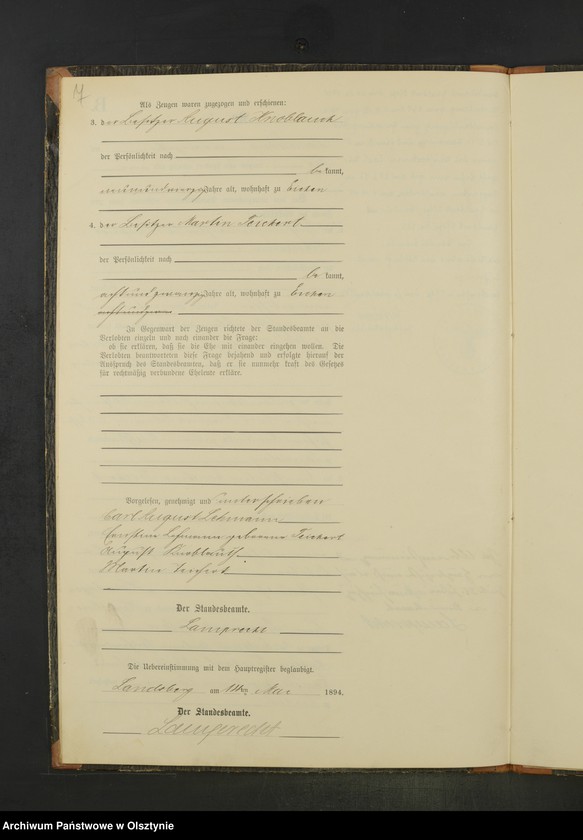 Als Zeugen waren zugezogen und erschienen:
3. der Besitzer August Knoblauch
der Persönlichkeit nach
be kannt,
Jahre alt, wohnhaft zu
4. der Besitzer Martin Teichert
der Persönlichkeit nach
be kannt,
achtundzwanzig Jahre alt, wohnhaft zu
In Gegenwart der Zeugen richtete der Standesbeamte an die
Verlobten einzeln und nach einander die Frage:
ob sie erklären, daß sie die Ehe mit einander eingehen wollen. Die
Verlobten beantworteten diese Frage bejahend und erfolgte hierauf der
Ausspruch des Standesbeamten, daß er sie nunmehr kraft des Gesetzes
für rechtmäßig verbundene Eheleute erkläre.
Vorgelesen, genehmigt und unterschrieben
Carl August Lehmann
Lehmann geborene Teichert
August
Martin Teichert
Der Standesbeamte.
Lamprecht
Die Uebereinstimmung mit dem Hauptregister beglaubigt.
Landsberg am 14ten Mai 1894.
Der Standesbeamte.
Lamprecht
Archiwum Państwowe w Olsztynie